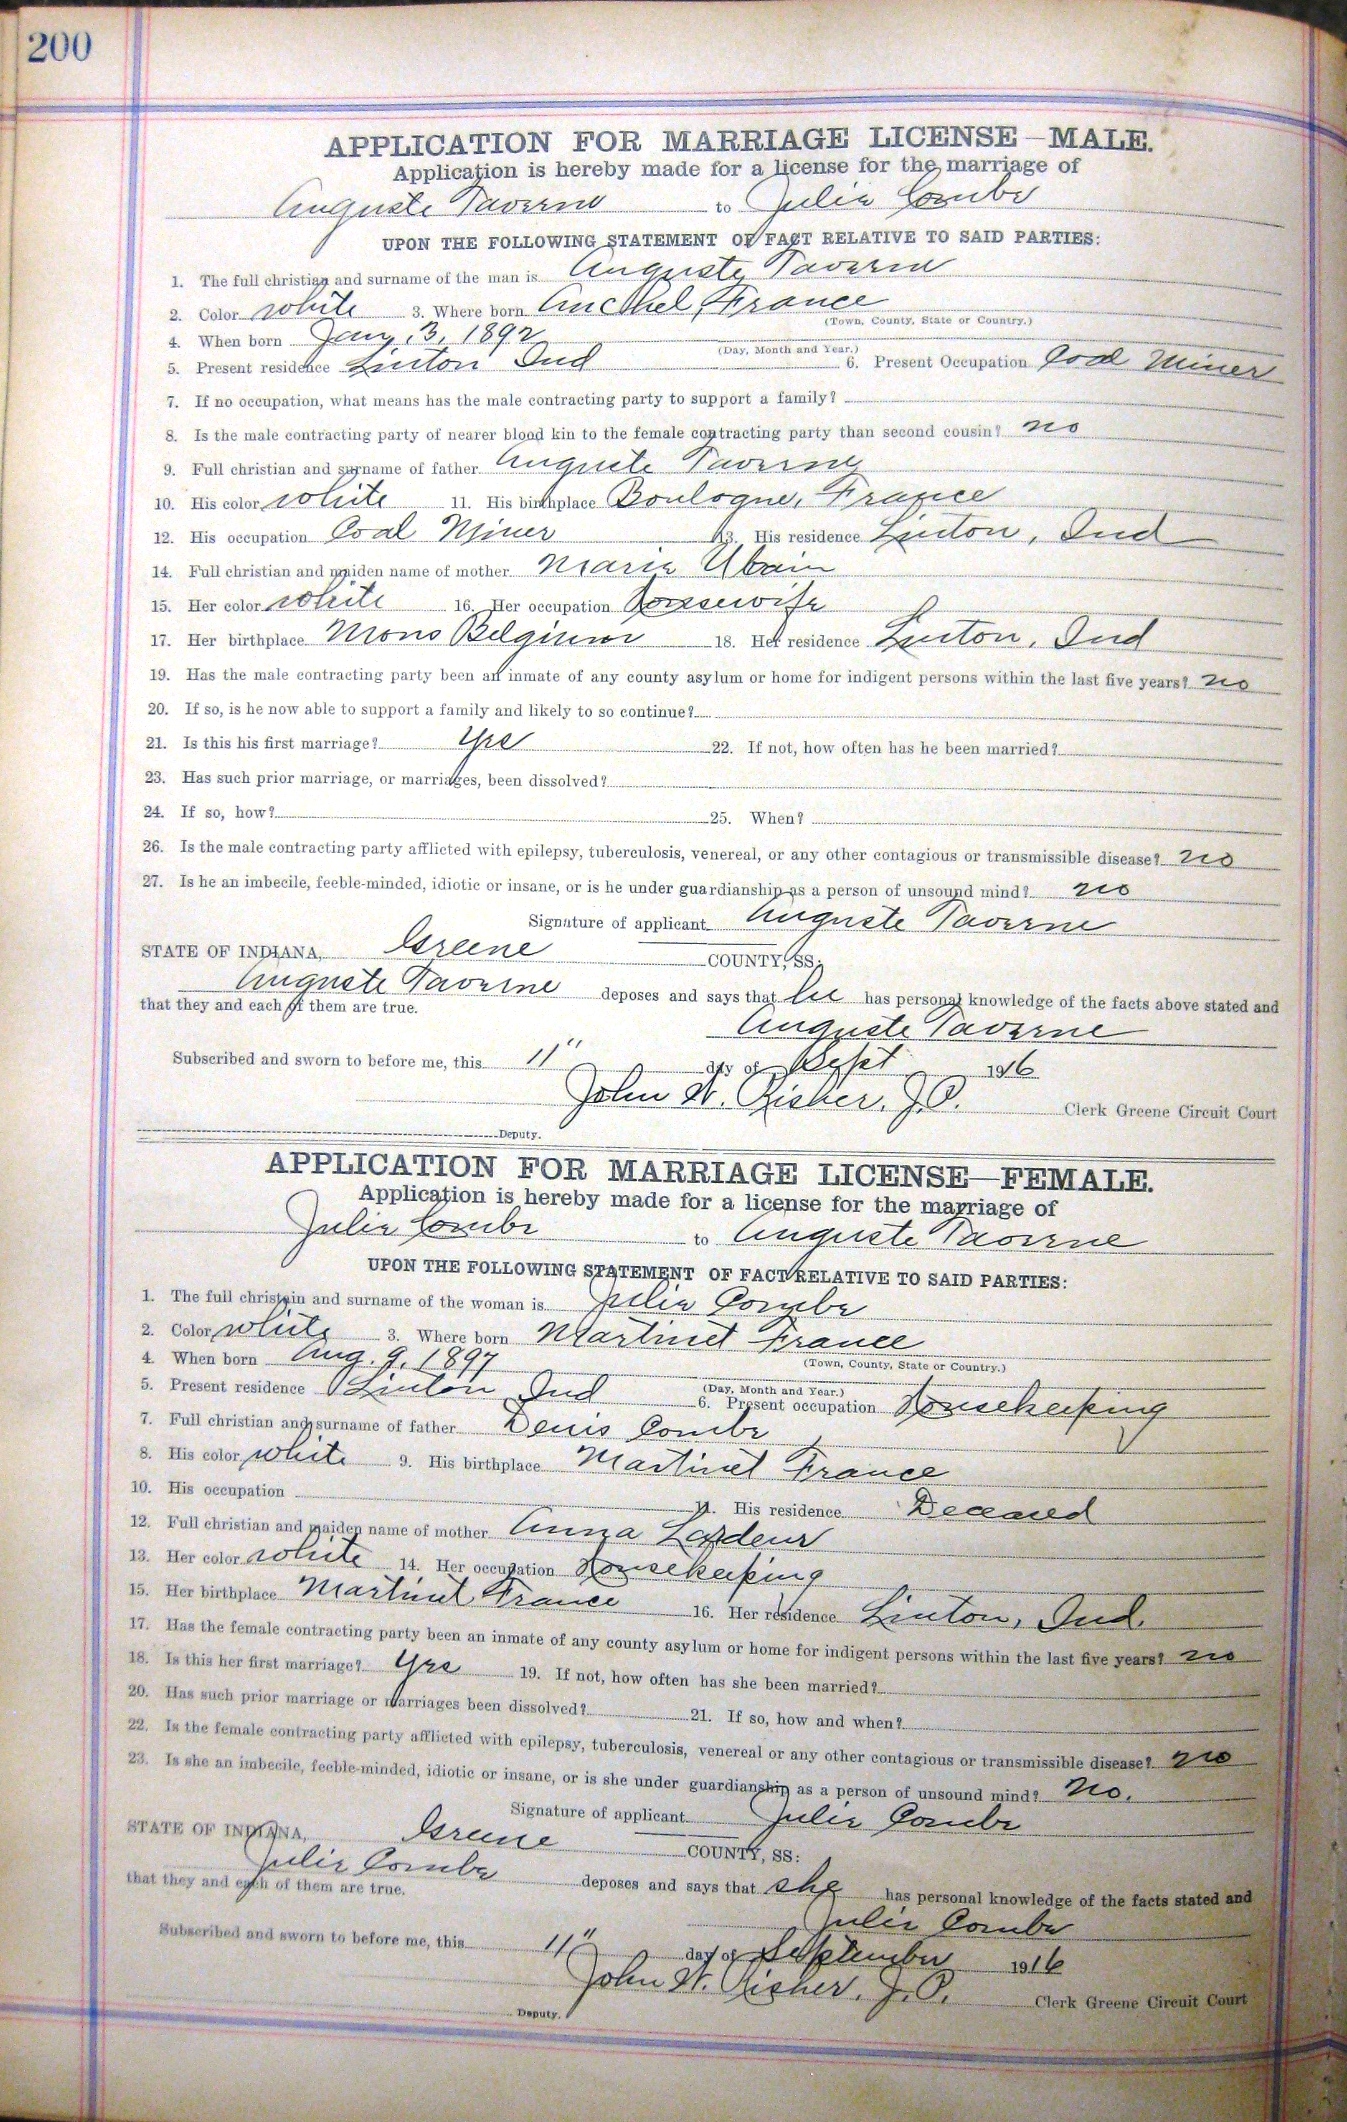 200
APPLICATION FOR MARRIAGE LICENSE—MALE.
Application is hereby made for a license for the marriage of
Auguste Taverne to Julie Combe
UPON THE FOLLOWING STATEMENT OF FACT RELATIVE TO SAID PARTIES:
1. The full christian and surname of the man is Auguste Taverne
2. Color white 3. Where born Auchel, France
(Town, County, State or Country.)
4. When born Jan. 3, 1892
(Day, Month and Year.)
5. Present residence Linton Ind 6. Present Occupation Coal Miner
7. If no occupation, what means has the male contracting party to support a family?
8. Is the male contracting party of nearer blood kin to the female contracting party than second cousin? no
9. Full christian and surname of father Auguste Taverne
10. His color white 11. His birthplace Boulogne, France
12. His occupation Coal Miner 13. His residence Linton, Ind
14. Full christian and maiden name of mother Marie Ubain
15. Her color white 16. Her occupation Housewife
17. Her birthplace Mons Belgium 18. Her residence Linton, Ind
19. Has the male contracting party been an inmate of any county asylum or home for indigent persons within the last five years? no
20. If so, is he now able to support a family and likely to so continue?
21. Is this his first marriage? yes 22. If not, how often has he been married?
23. Has such prior marriage, or marriages, been dissolved?
24. If so, how? 25. When?
26. Is the male contracting party afflicted with epilepsy, tuberculosis, venereal, or any other contagious or transmissible disease? no
27. Is he an imbecile, feeble-minded, idiotic or insane, or is he under guardianship as a person of unsound mind? no
Signature of applicant Auguste Taverne
STATE OF INDIANA, Greene COUNTY, SS:
Auguste Taverne deposes and says that he has personal knowledge of the facts above stated and
that they and each of them are true.
Auguste Taverne
Subscribed and sworn to before me, this 11" day of Sept 1916
John W. Risher, J.P. Clerk Greene Circuit Court
Deputy.
APPLICATION FOR MARRIAGE LICENSE—FEMALE.
Application is hereby made for a license for the marriage of
Julie Combe to Auguste Taverne
UPON THE FOLLOWING STATEMENT OF FACT RELATIVE TO SAID PARTIES:
1. The full christain and surname of the woman is Julie Combe
2. Color white 3. Where born Martinet France
(Town, County, State or Country.)
4. When born Aug. 9, 1897
(Day, Month and Year.)
5. Present residence Linton Ind 6. Present occupation Housekeeping
7. Full christian and surname of father Denis Combe
8. His color white 9. His birthplace Martinet France
10. His occupation 11. His residence Deceased
12. Full christian and maiden name of mother Anna
13. Her color white 14. Her occupation Housekeeping
15. Her birthplace Martinet France 16. Her residence Linton, Ind.
17. Has the female contracting party been an inmate of any county asylum or home for indigent persons within the last five years? no
18. Is this her first marriage? yes 19. If not, how often has she been married?
20. Has such prior marriage or marriages been dissolved? 21. If so, how and when?
22. Is the female contracting party afflicted with epilepsy, tuberculosis, venereal or any other contagious or transmissible disease? no
23. Is she an imbecile, feeble-minded, idiotic or insane, or is she under guardianship as a person of unsound mind? No.
Signature of applicant Julie Combe
STATE OF INDIANA, Greene COUNTY, SS:
Julie Combe deposes and says that she has personal knowledge of the facts stated and
that they and each of them are true.
Julie Combe
Subscribed and sworn to before me, this 11" day of September 1916
John W. Risher, J.P. Clerk Greene Circuit Court
Deputy.